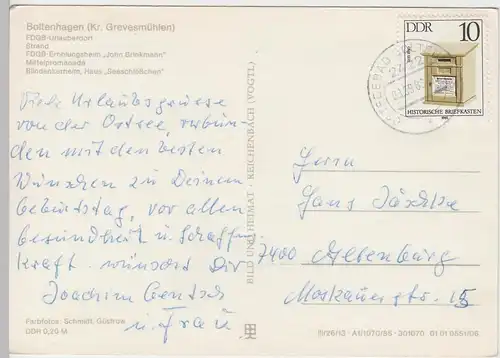 Boltenhagen (Kr. Grevesmühlen)
FDGB-Urlauberdorf
Strand
FDGB-Erholungsheim „John Brinkmann"
Mittelpromenade
Blindenkurheim, Haus „Seeschlößchen"
Viele Urlaubsgrüsse
von der Ostsee, verbun-
den mit den besten
Wünschen zu Deinem
Geburtstag, vor allem
Gesundheit u. Schaffens-
kraft wünscht Dir
Joachim Gentsch
u. Frau.
Farbfotos: Schmidt, Güstrow
DDR 0,20 M
BILD UND HEIMAT · REICHENBACH (VOGTL)
DDR 10
HISTORISCHE BRIEFKASTEN
OSTSEEBAD
Herrn
Hans
7400 Altenburg
Moskauer str. 15
III/26/13 A1/1070/85 301070 01 01 0551/06